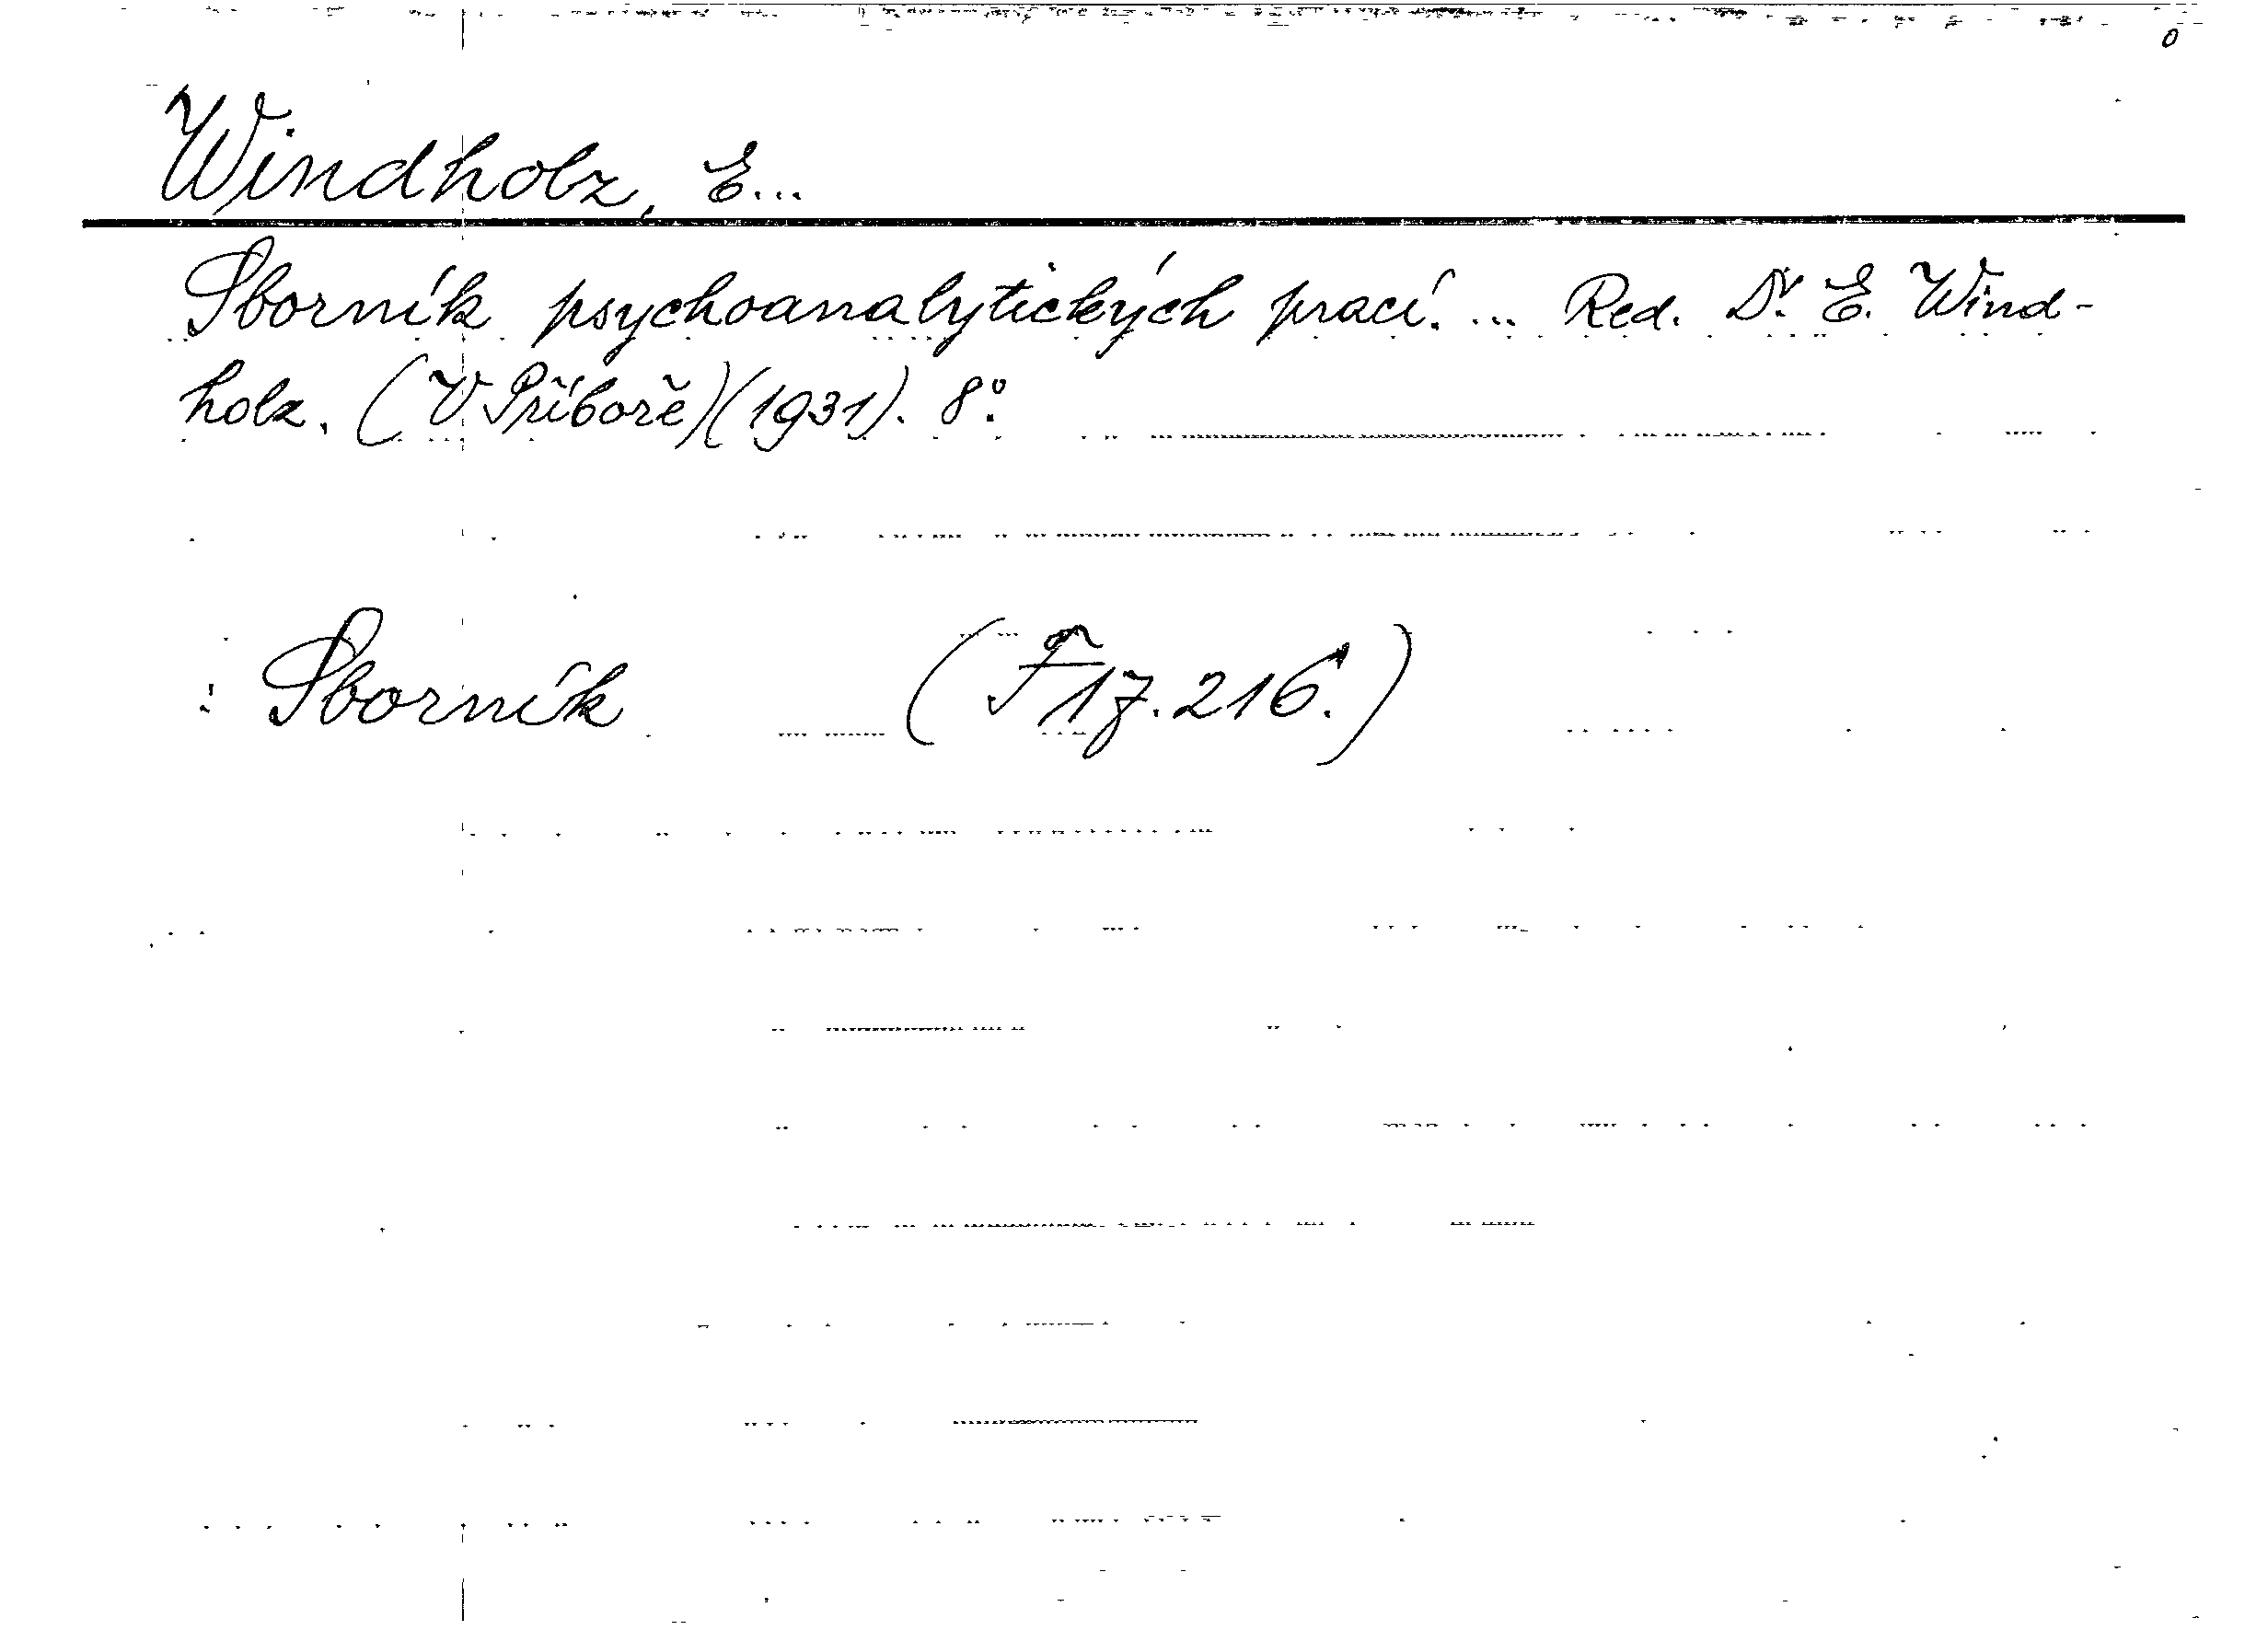 0
Windholz, E...
Sborník psychoanalytických prací. ... Red. Dr. E. Wind-
holz. (V Příboře)(1931). 8°.
: Sborník (F 17.216.)